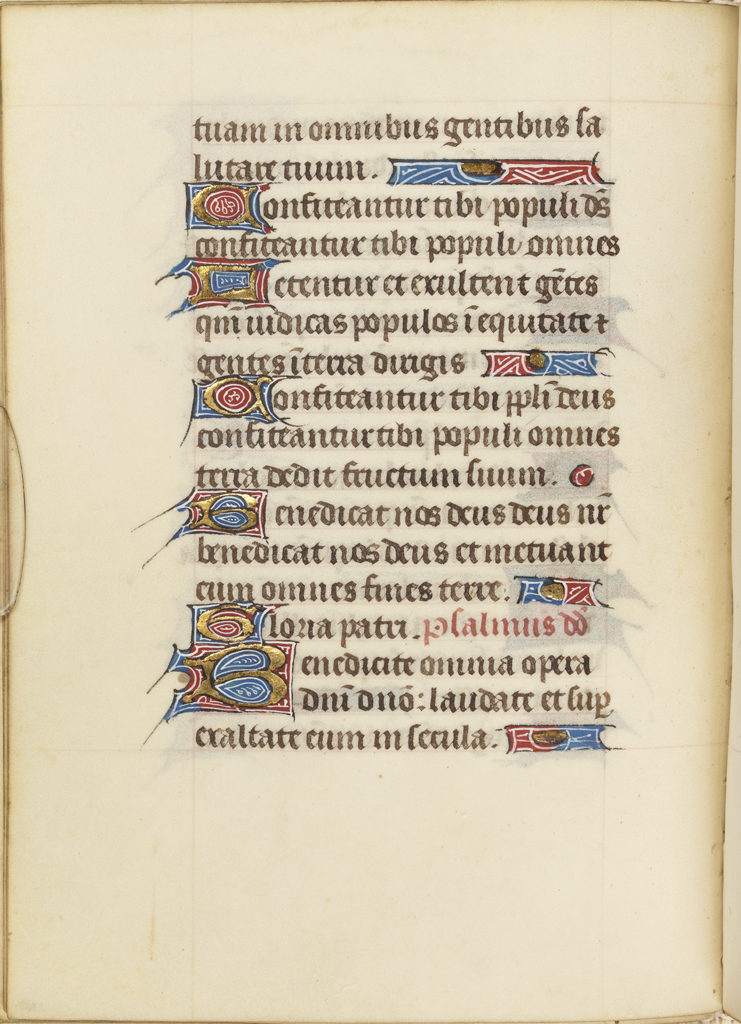 tuam in omnibus gentibus sa
lutare tuum.
Confiteantur tibi populi ds̄
confiteantur tibi populi omnes
Letentur et exultent gētes
qm̄ iudicas populos ī equitate ⁊
gentes ī terra dirigis
Confiteantur tibi ppl̄i deus
confiteantur tibi populi omnes
terra dedit fructum suum.
Benedicat nos deus deus nr̄
benedicat nos deus et metuant
eum omnes fines terre.
Gloria patri. psalmus dd̄
Benedicite omnia opera
dn̄i dn̄o: laudate et suꝑ
exaltate eum in secula.